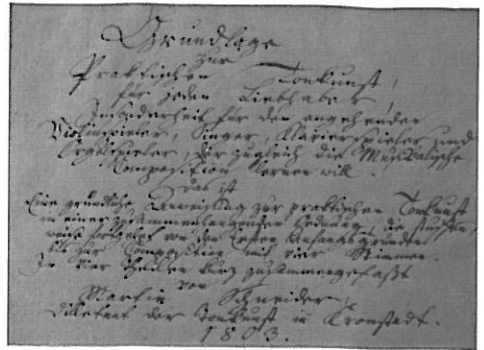 Grundlage
zur
Praktischen Tonkunst,
für jeden Liebhaber,
Insbesonderheit für den angehenden
Violinspieler, Singer, Klavierspieler und
Orgelspieler, der zugleich die Musikalische
Composition lernen will.
Das ist
Eine gründliche Anweisung zur praktischen Tonkunst
in einer zusammenhangenden Ordnung, die stuffen
weise von den Ersten Anfangsgründen
bis zur Composition mit vier Stimmen.
In vier Theilen kurz zusammengefaßt
von
Martin Schneider,
Diletant der Tonkunst in Kronstadt.
1803.